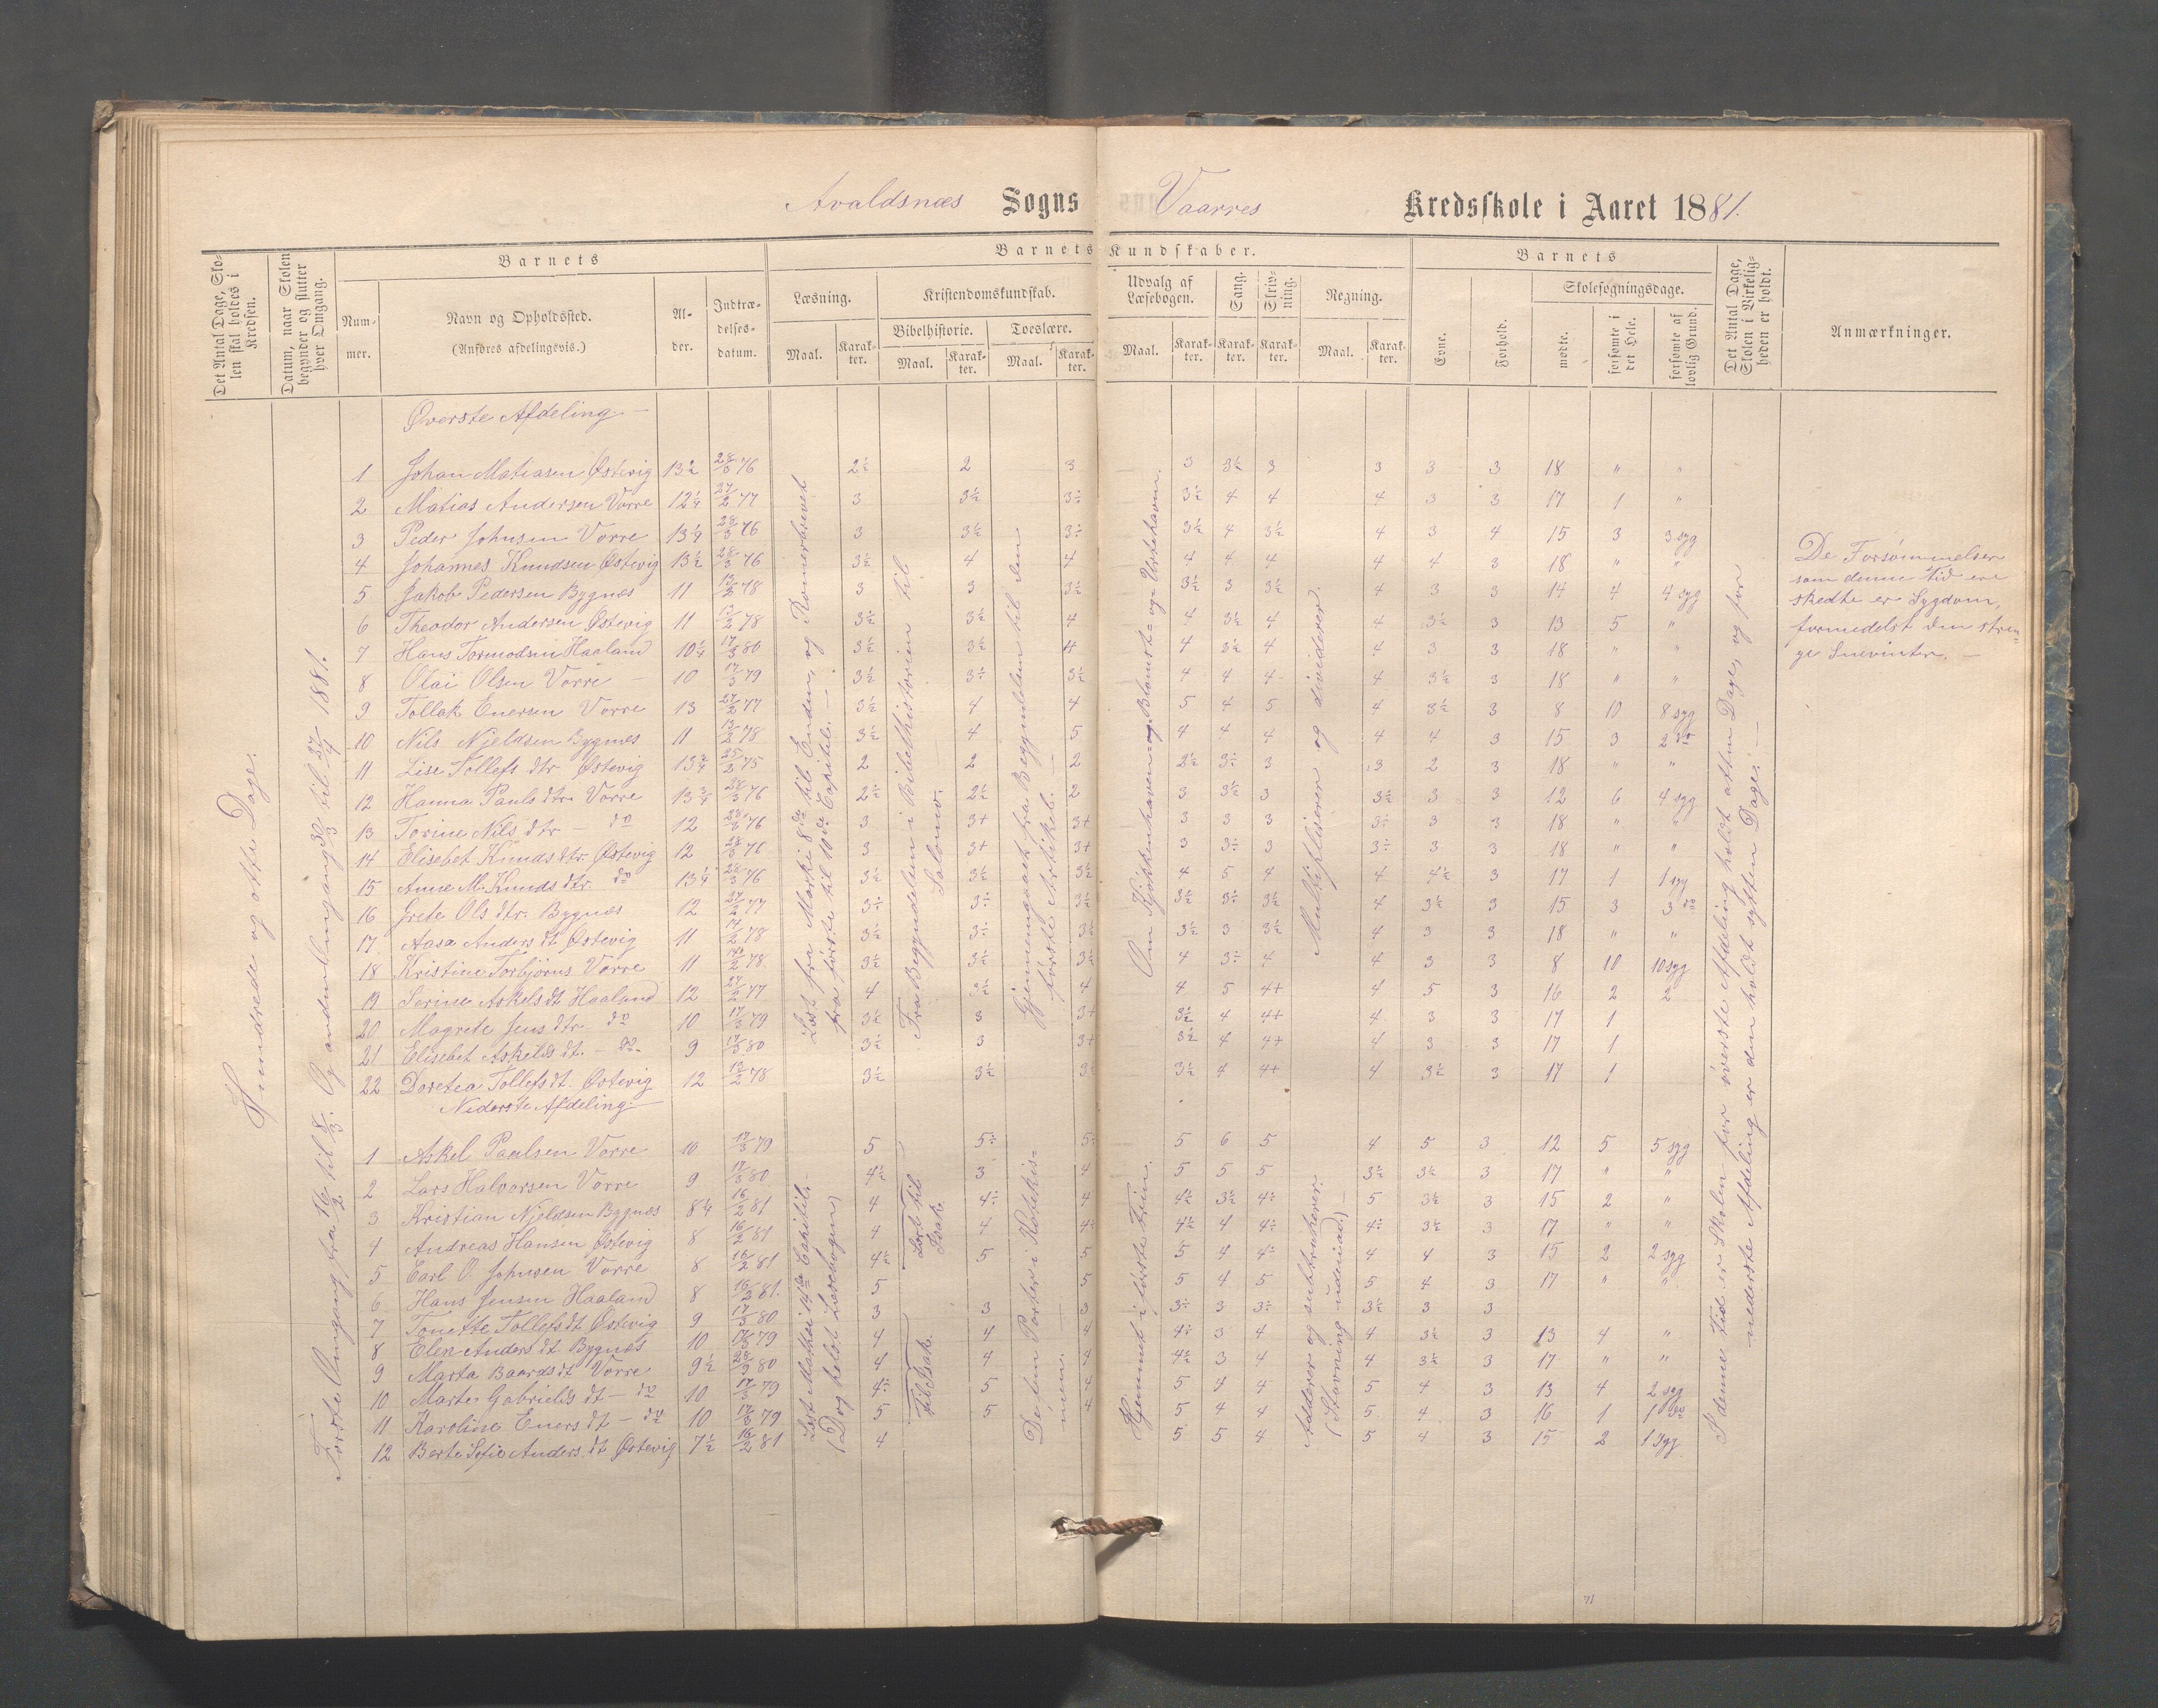 Avaldsnæs Sogns Vaarres Kredsskole i Aaret 1881.
Det Antal Dage, Skolen skal holdes i Kredsen.
Datum, naar Skolen begynder og slutter hver Omgang.
Barnets
Nummer.
Navn og Opholdssted.
(Anføres afdelingsvis.)
Alder.
Indtrædelsesdatum.
Barnets Kundskaber.
Læsning.
Maal. Karakter.
Kristendomskundskab.
Bibelhistorie.
Maal. Karakter.
Troeslære.
Maal. Karakter.
Udvalg af Læsebogen.
Maal. Karakter.
Sang.
Karakter.
Skrivning.
Karakter.
Regning.
Maal. Karakter.
Barnets
Evne.
Forhold.
Skolesøgningsdage.
mødte.
forsømte i det Hele.
forsømte af lovlig Grund.
Det Antal Dage, Skolen i Virkeligheden er holdt.
Anmærkninger.
Hundrede og otte Dage.
Første Omgang fra 16/2 til 8/3. Og anden Omgang 30/3 til 27/4 1881.
Øverste Afdeling.
1 Johan Matiasen Østevig 13½ 28/3 76 2½ 2 3 3 3½ 3 3 3 3 18 " "
2 Matias Andersen Vorre 12¼ 27/2 77 3 3½ 3÷ 3½ 4 4 4 3 3 17 1 "
3 Peder Johnsen Vorre 13¼ 28/3 76 3 3½ 3÷ 3½ 4 3½ 4 3 4 15 3 3 syg
4 Johannes Knudsen Østevig 13½ 28/3 76 3½ 4 4 4 4 4 4 4 3 18 " "
5 Jakob Pedersen Bygnes 11 13/2 78 3 3 3½ 3½ 3 3½ 4 3 3 14 4 4 syg
6 Theodor Andersen Østevig 11 13/2 78 3½ 3½ 4 4 3½ 4 4 3½ 3 13 5 "
7 Hans Tormodsen Haaland 10¼ 17/3 80 3½ 3½ 4 4 3½ 4 4 3 3 18 " "
8 Olai Olsen Vorre 10 17/3 79 3½ 3÷ 3½ 4 4 4 4 3½ 3 18 " "
9 Tollak Enersen Vorre 13 27/2 77 3½ 4 4 5 4 5 4 3½ 3 8 10 8 syg
10 Nils Njeldsen Bygnes 11 13/2 78 3½ 4 5 4 4 4 4 4 3 15 3 2 do
11 Lise Tollefs dtr. Østevig 13¾ 25/2 75 2 2 2 2½ 3÷ 3 3 2 3 18 " "
12 Hanna Pauls dtr. Vorre 13¾ 28/3 76 2½ 2½ 2 3 3½ 3 3½ 3 3 12 6 4 syg
13 Torine Nils dtr – do 12 28/3 76 3 3+ 3+ 3 3 3 3÷ 3 3 18 " "
14 Elisebet Knuds dtr. Østevig 12 28/3 76 3 3+ 3+ 3 3÷ 3 3÷ 3 3 18 " "
15 Anne M. Knuds dtr. do 13¼ 28/3 76 3½ 3½ 3½ 4 5 4 4 4½ 3 17 1 1 syg
16 Grete Ols dtr. Bygnes 12 27/2 77 3÷ 3÷ 3½ 3½ 3÷ 3½ 4 3½ 3 15 3 3 do
17 Aasa Anders dt Østevig 11 17/2 78 3½ 3÷ 3½ 3½ 3 3½ 4 3 3 18 " "
18 Kristine Torbjørns Vorre 11 2 78 3½ 3½ 3½ 4 3÷ 4 4 3 3 8 10 10 syg
19 Serine Askels dt Haaland 12 27/2 77 4 3½ 4 4 5 4+ 4 5 3 16 2 2
20 Magrete Jens dtr – do 10 17/3 79 3½ 3 3+ 3½ 4 4+ 4 3 3 17 1
21 Elisebet Askelds dt. – do 9 17/3 80 3½ 3 3+ 3½ 4 4+ 4 3 3 17 1
22 Doretea Tollefs dt. Østevig 12 13/2 78 3½ 3½ 3½ 3½ 4 4+ 4 3½ 3 17 1
Læst fra Marki 8de til Enden, og Romerbrevet fra første til 10de Capitel. –
Fra Begyndelsen i Bibelhistorien til Salomo.
Gjennemgaaet fra Begyndelsen til den første Artikel.
Om Kjøkkenhaven og Blomst- og Urtehaven.
Multipliserer og dividerer.
Nederste Afdeling.
1 Askel Paulsen Vorre 10 17/3 79 5 5÷ 5÷ 5 6 5 4 5 3 12 5 5 syg
2 Lars Halvorsen Vorre 9 17/3 80 4½ 3 4 5 5 5 3½ 3½ 3 17 " "
3 Kristian Njeldsen Bygnes 8¼ 16/2 81 4 4÷ 4 4½ 3½ 4÷ 5 3½ 3 15 2 "
4 Andreas Hansen Østevig 8 16/2 81 4 4 4÷ 4½ 4 4÷ 4÷ 3½ 3 17 " "
5 Carl O. Johnsen Vorre 8 16/2 81 4½ 5 5 5 4 4÷ 4 4 3 15 2 2 syg
6 Hans Jensen Haaland 8 16/2 81. 5 5 5 4 5 5 4 3 17 " "
7 Tonette Tollefs dt Østevig 9 17/3 80 3 3 3 3÷ 3 3÷ 3½ 3 3
8 Elen Anders dt Bygnes 10 17/3 79 4 4 4 4÷ 3 4 4 3½ 3 13 4 "
9 Marta Baards dt Vorre 9½ 28/9 80 4 4 4 4½ 3 4 4 3½ 3 17 " "
10 Marte Gabriels dt – do 10 17/3 79 4÷ 5 4 5 4 4 5 4 3 13 4 2 syg
11 Karoline Eners dt – do 10 17/3 79 5 5 4 5 4 4 5 4 3 16 1 1 do
12 Berte Sofie Anders. dt Østevig 7½ 16/2 81 4 5 5 4 5 4 3 15 2 1 syg
Læst Matthei 14de Capitel. – (Dog heldst Læsebogen)
Lært til Isak.
Til Isak.
De fem Parter i Katekismen. –
Hjemmet i første Trin.
Adderer og subtraherer. (Stavning udenad.) –
I denne Tid er Skolen for øverste Afdeling holdt atten Dage, og for nederste Afdeling er den holdt sytten Dage. –
De Forsømmelser
som denne Tid ere
skedte er Sygdom,
formedelst den stren-
ge Snevinter. –
71